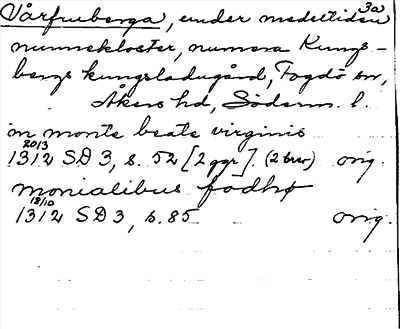 3a
Vårfruberga, under medeltiden
nunnekloster, numera Kungs-
bergs kungsladugård, Fogdö sn,
Åkers hd, Söderm. l.
in monte beate virginis
20/3
1312 SD 3, s. 52 [2 ggr] (2 brev) orig.
monialibus fodhø
18/10
1312 SD 3, s. 85 orig.